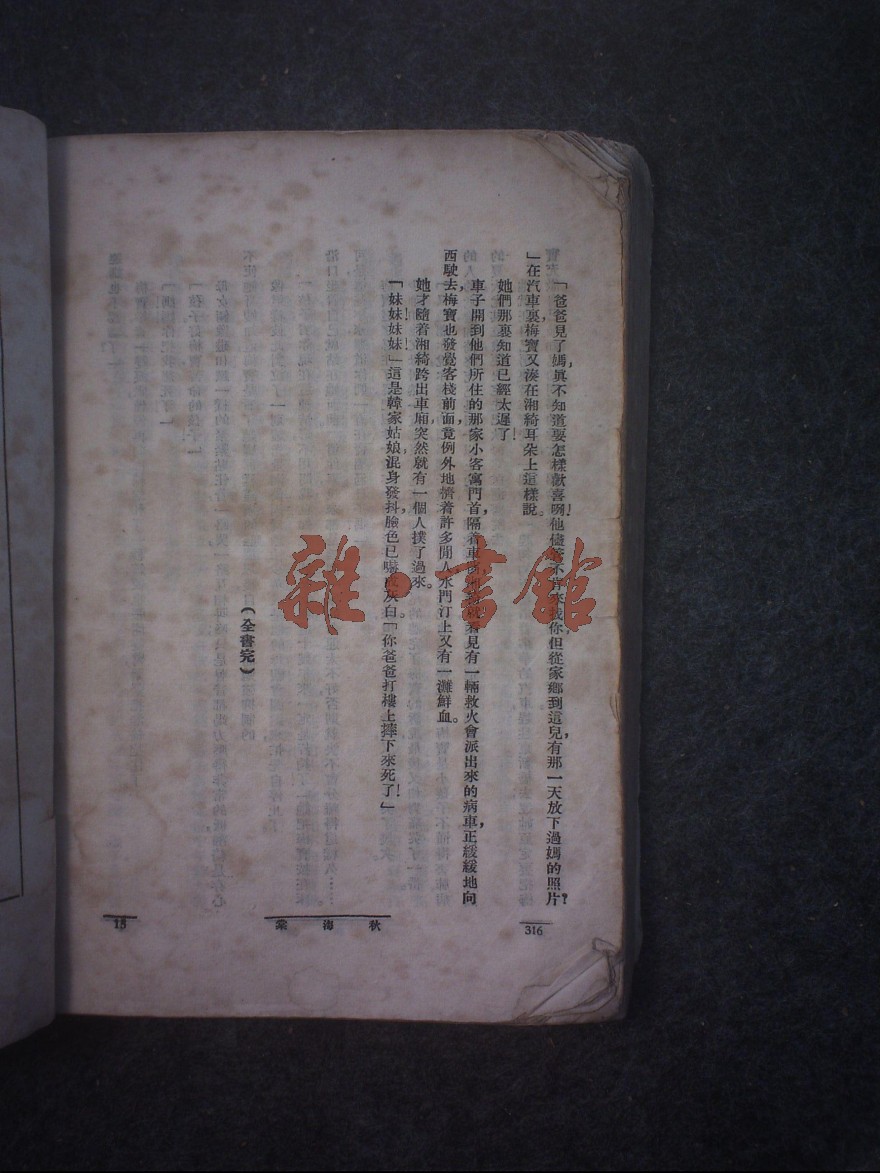 「爸爸見了媽，眞不知道要怎樣歡喜咧！他儘管不肯來找你，但從家鄉到這兒，有那一天放下過媽的照片？
」在汽車裏，梅寶又湊在湘綺耳朵上這樣說。
她們那裏知道已經太遲了！
車子開到他們所住的那家小客寓門首，隔着車窗，看見有一輛救火會派出來的病車，正緩緩地向
西駛去，梅寶也發覺客棧前面，竟例外地擠着許多閒人，水門汀上又有一灘鮮血。
她才隨着湘綺跨出車廂，突然就有一個人撲了過來。
「妹妹！妹妹！」這是韓家姑娘，混身發抖，臉色已嚇成灰白。「你爸爸打樓上摔下來死了！」
（全書完）
316
秋海棠
18
雜·書館